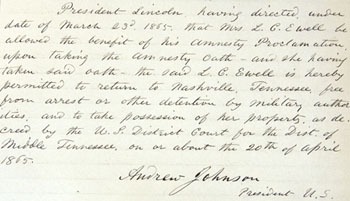 President Lincoln having directed, under
date of March 23d. 1865. that Mrs. L. C. Ewell be
allowed the benefit of his Amnesty Proclamation,
upon taking the Amnesty Oath - and she having
taken said oath - the said L. C. Ewell is hereby
permitted to return to Nashville, Tennessee, free
from arrest or other detention by military author
ities, and to take possession of her property, as de-
creed by the U.S. District Court for the Dist. of
Middle Tennessee, on or about the 20th of April
1865.
Andrew Johnson
President U.S.